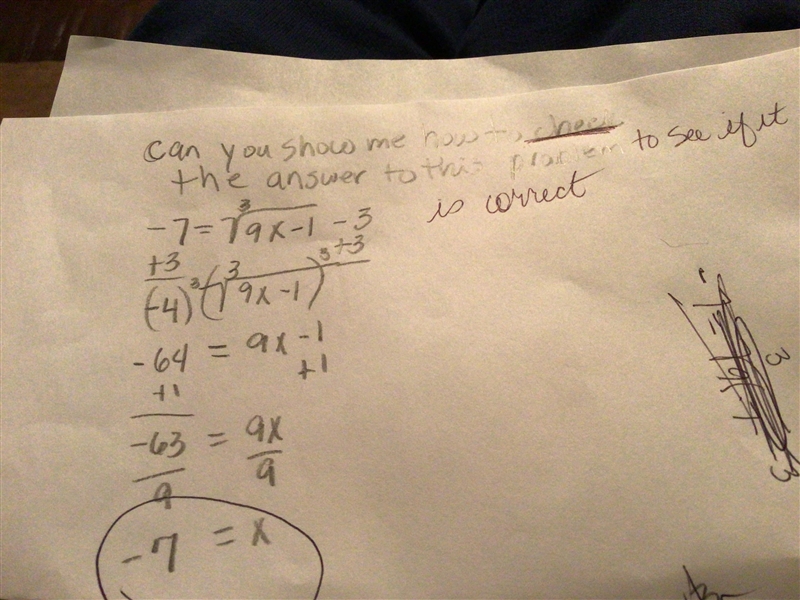 can you show me how to check to see if it
the answer to this problem is correct
-7 = ∛9x-1 - 3
+3 +3
(-4)³ (∛9x-1)³
-64 = 9x-1
+1 +1
-63 = 9x
9 9
-7 = x